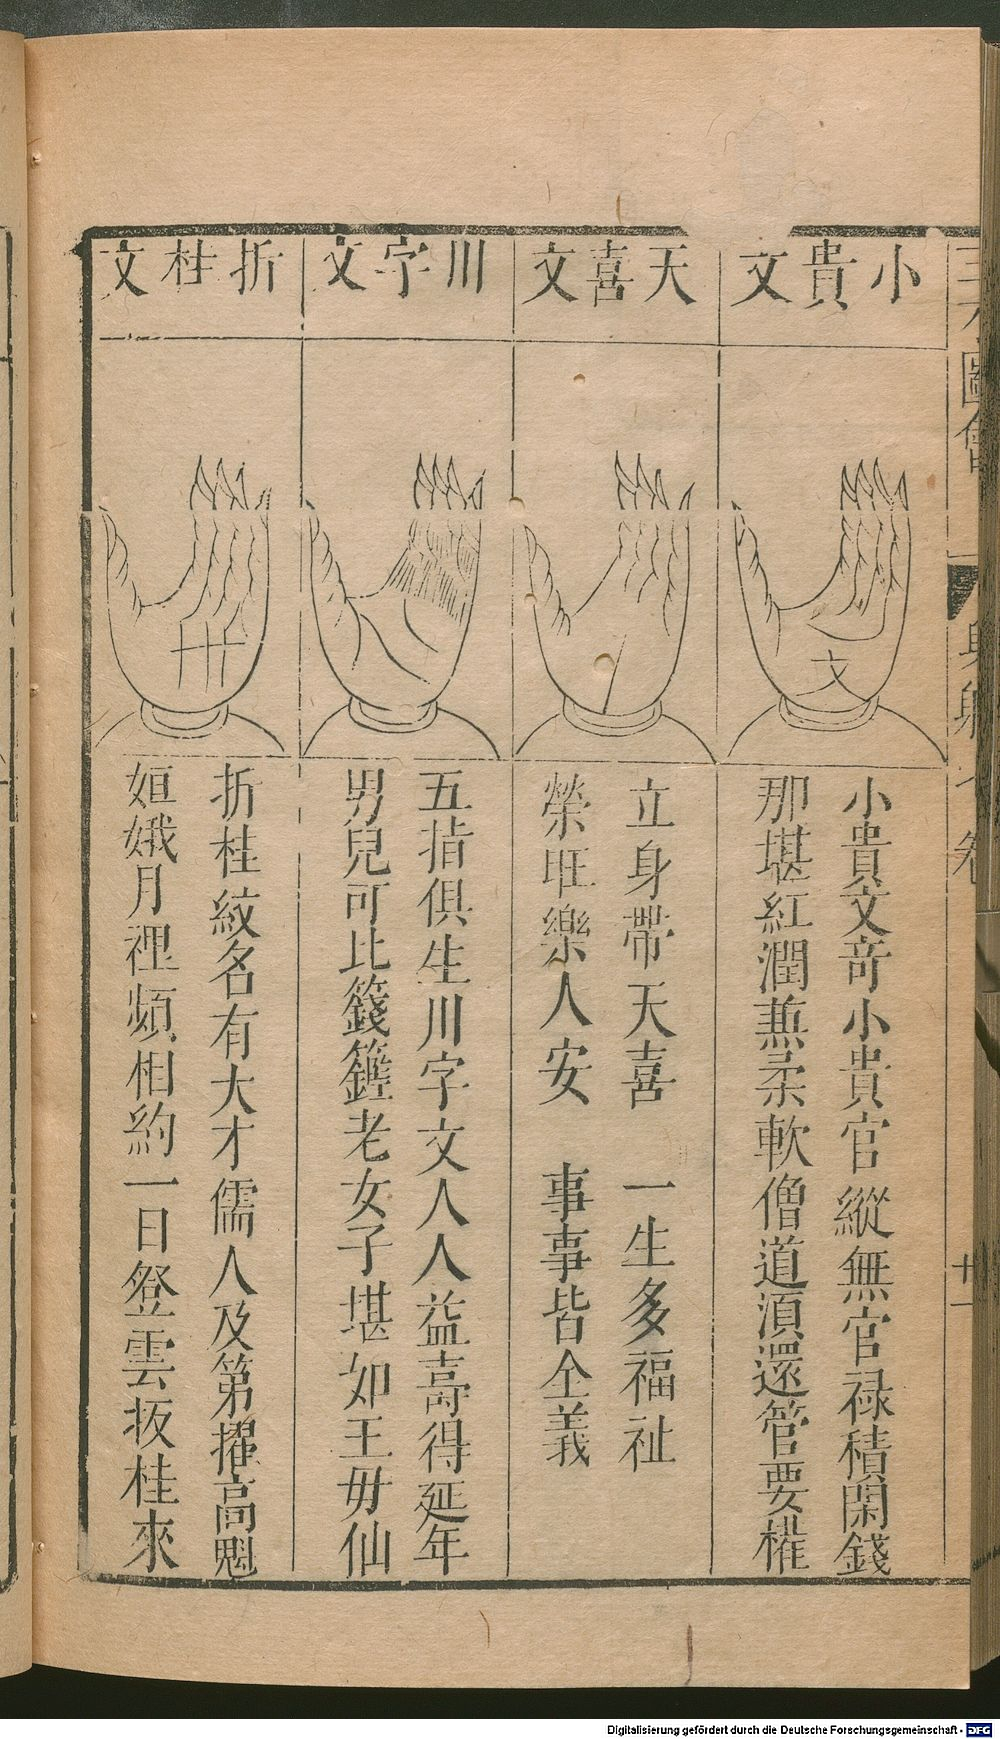 小貴文
小貴文竒小貴官縱無官禄積閑錢
那堪紅潤蕪柔軟僧道湏還管要權
天喜文
立身帶天喜 一生多福祉
榮旺樂人安 事事皆全義
川字文
五指俱生川字文人人益壽得延年
男兒可比籛鏗老女子堪如王毋仙
折桂文
折桂紋名有大才儒人及第擢高魁
姮娥月裡頻相約一日登雲扳桂來
三才圖會
身體七卷
廿一
Digitalisierung gefördert durch die Deutsche Forschungsgemeinschaft - DFG